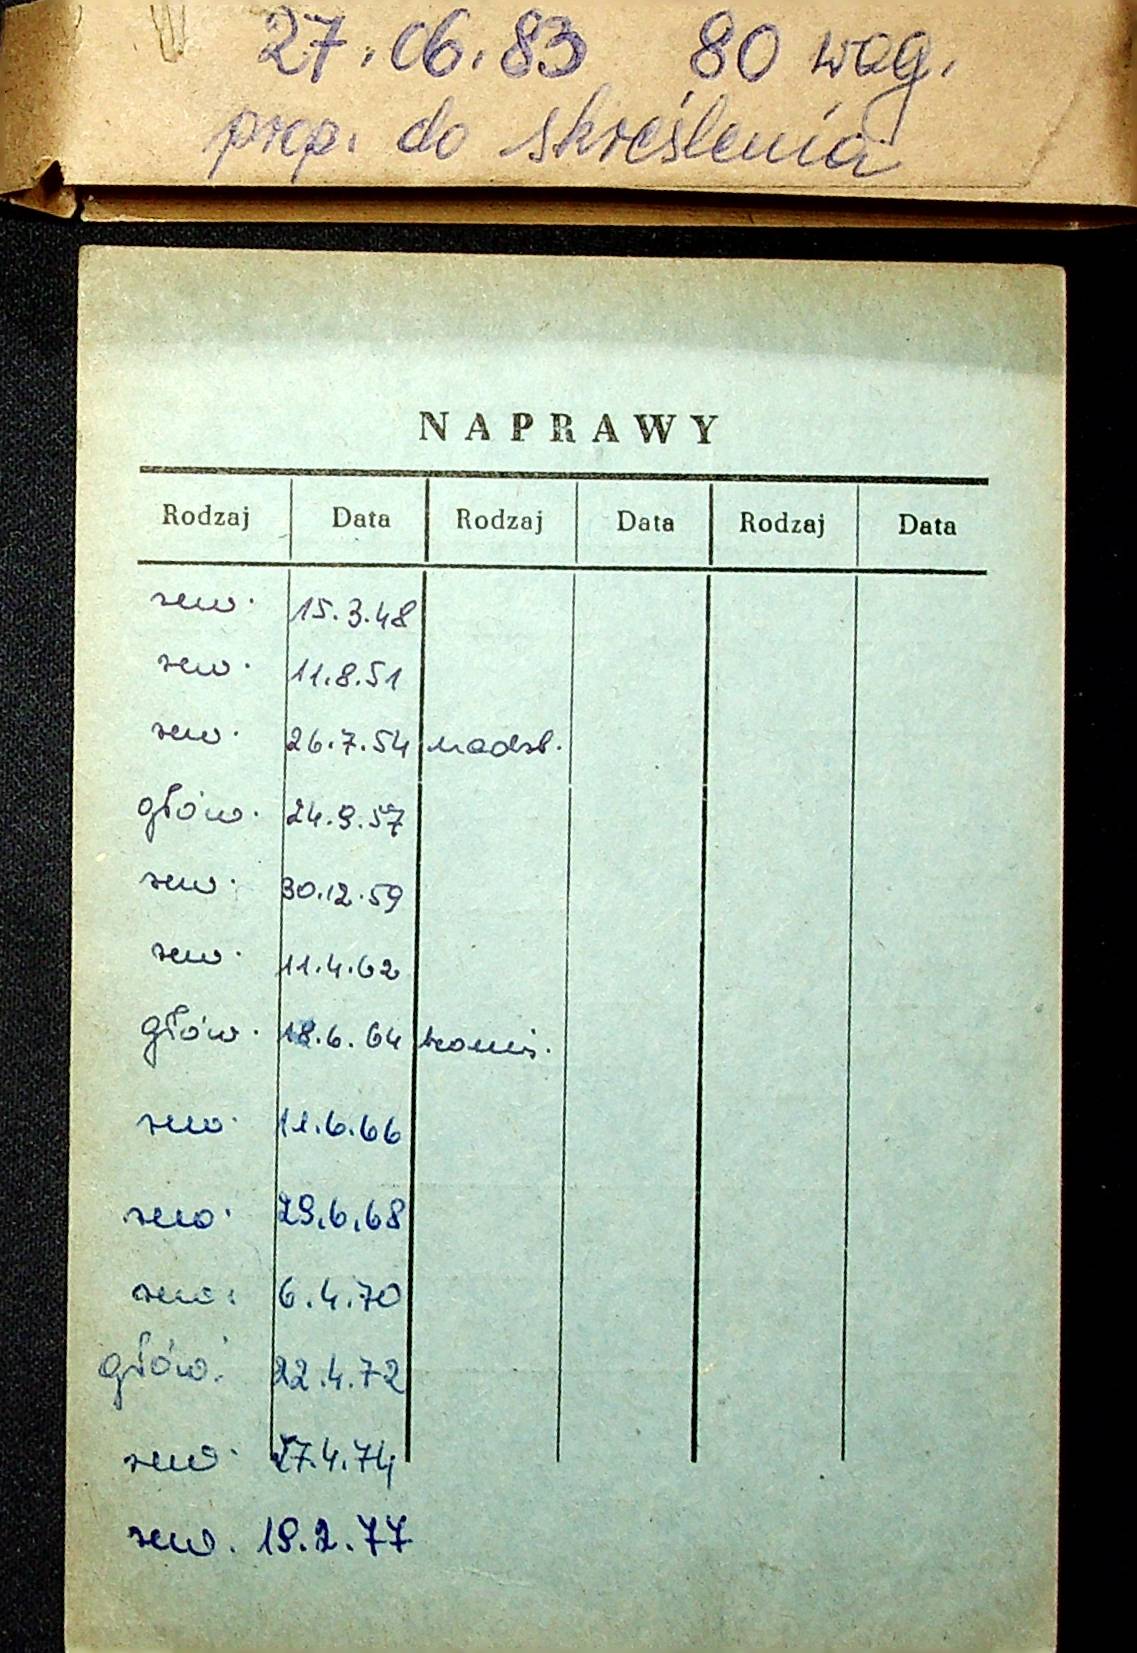 27.06.83 80 wag.
prop. do skreślenia
NAPRAWY
Rodzaj Data Rodzaj Data Rodzaj Data
rew. 15.3.48
rew. 11.8.51
rew. 26.7.54 nadzl.
głów. 24.9.57
rew. 30.12.59
rew. 11.4.62
głów. 18.6.64
rew. 11.6.66
rew. 29.6.68
rew. 6.4.70
głów. 22.4.72
rew. 27.4.74
rew. 19.2.77